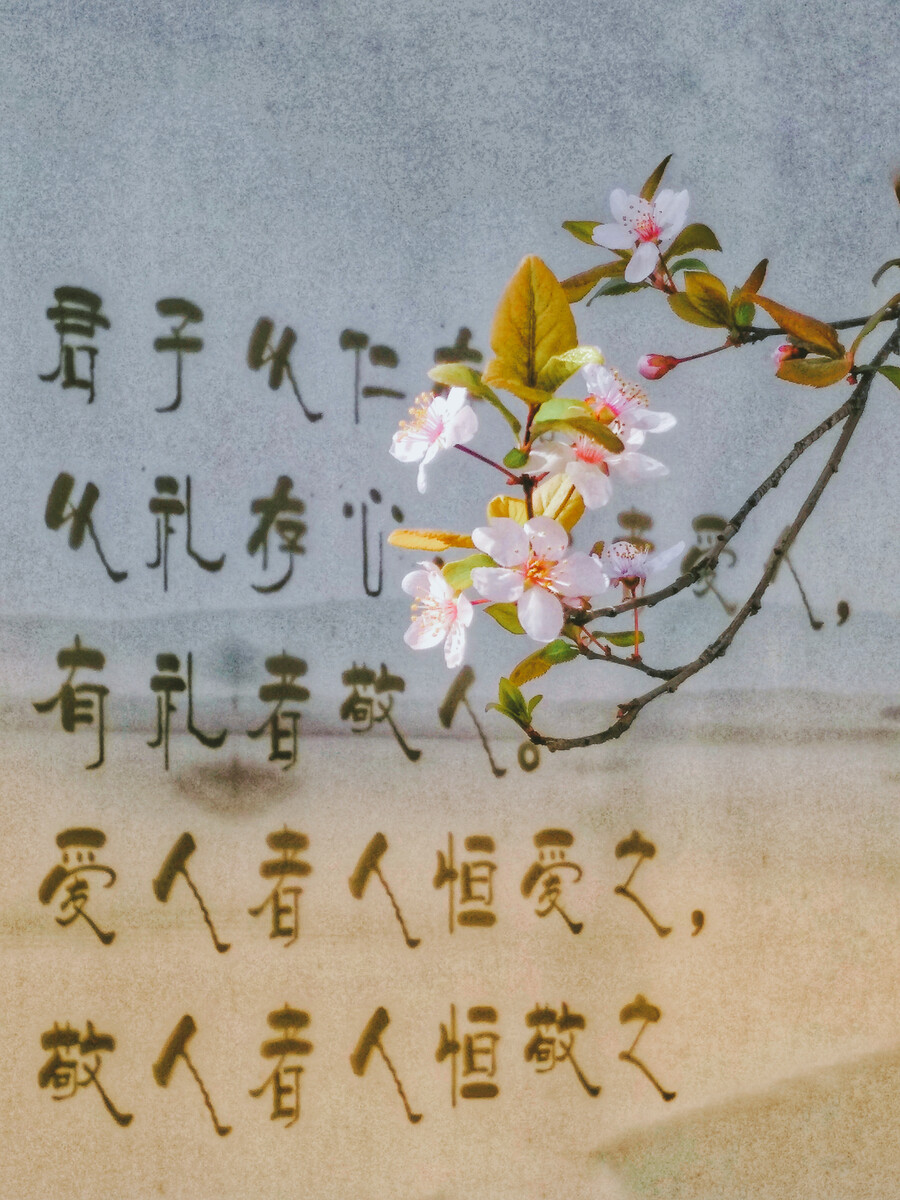 君子以仁
以礼存心 者爱人，
有礼者敬人。
爱人者人恒爱之，
敬人者人恒敬之